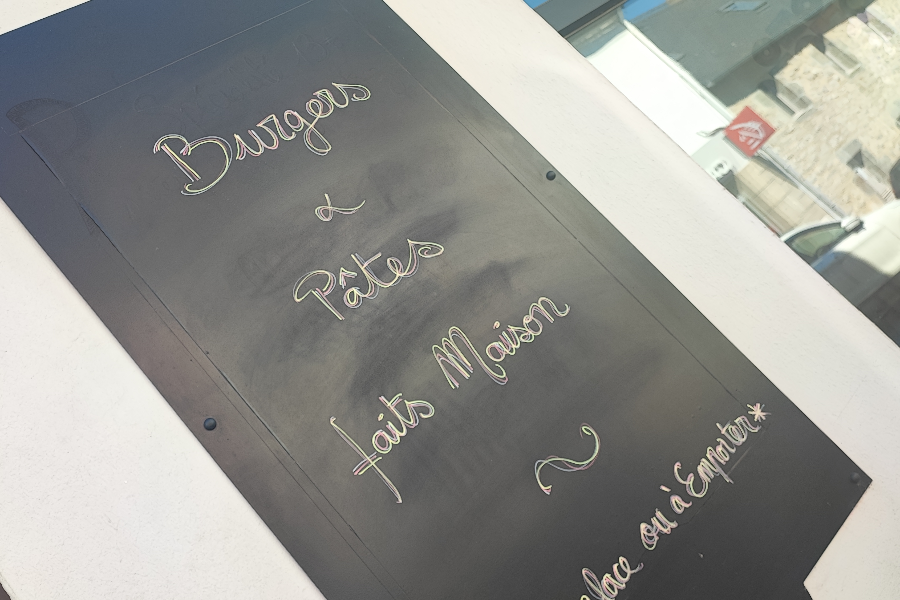 Burgers
&
Pâtes
faits Maison
ou à Emporter*